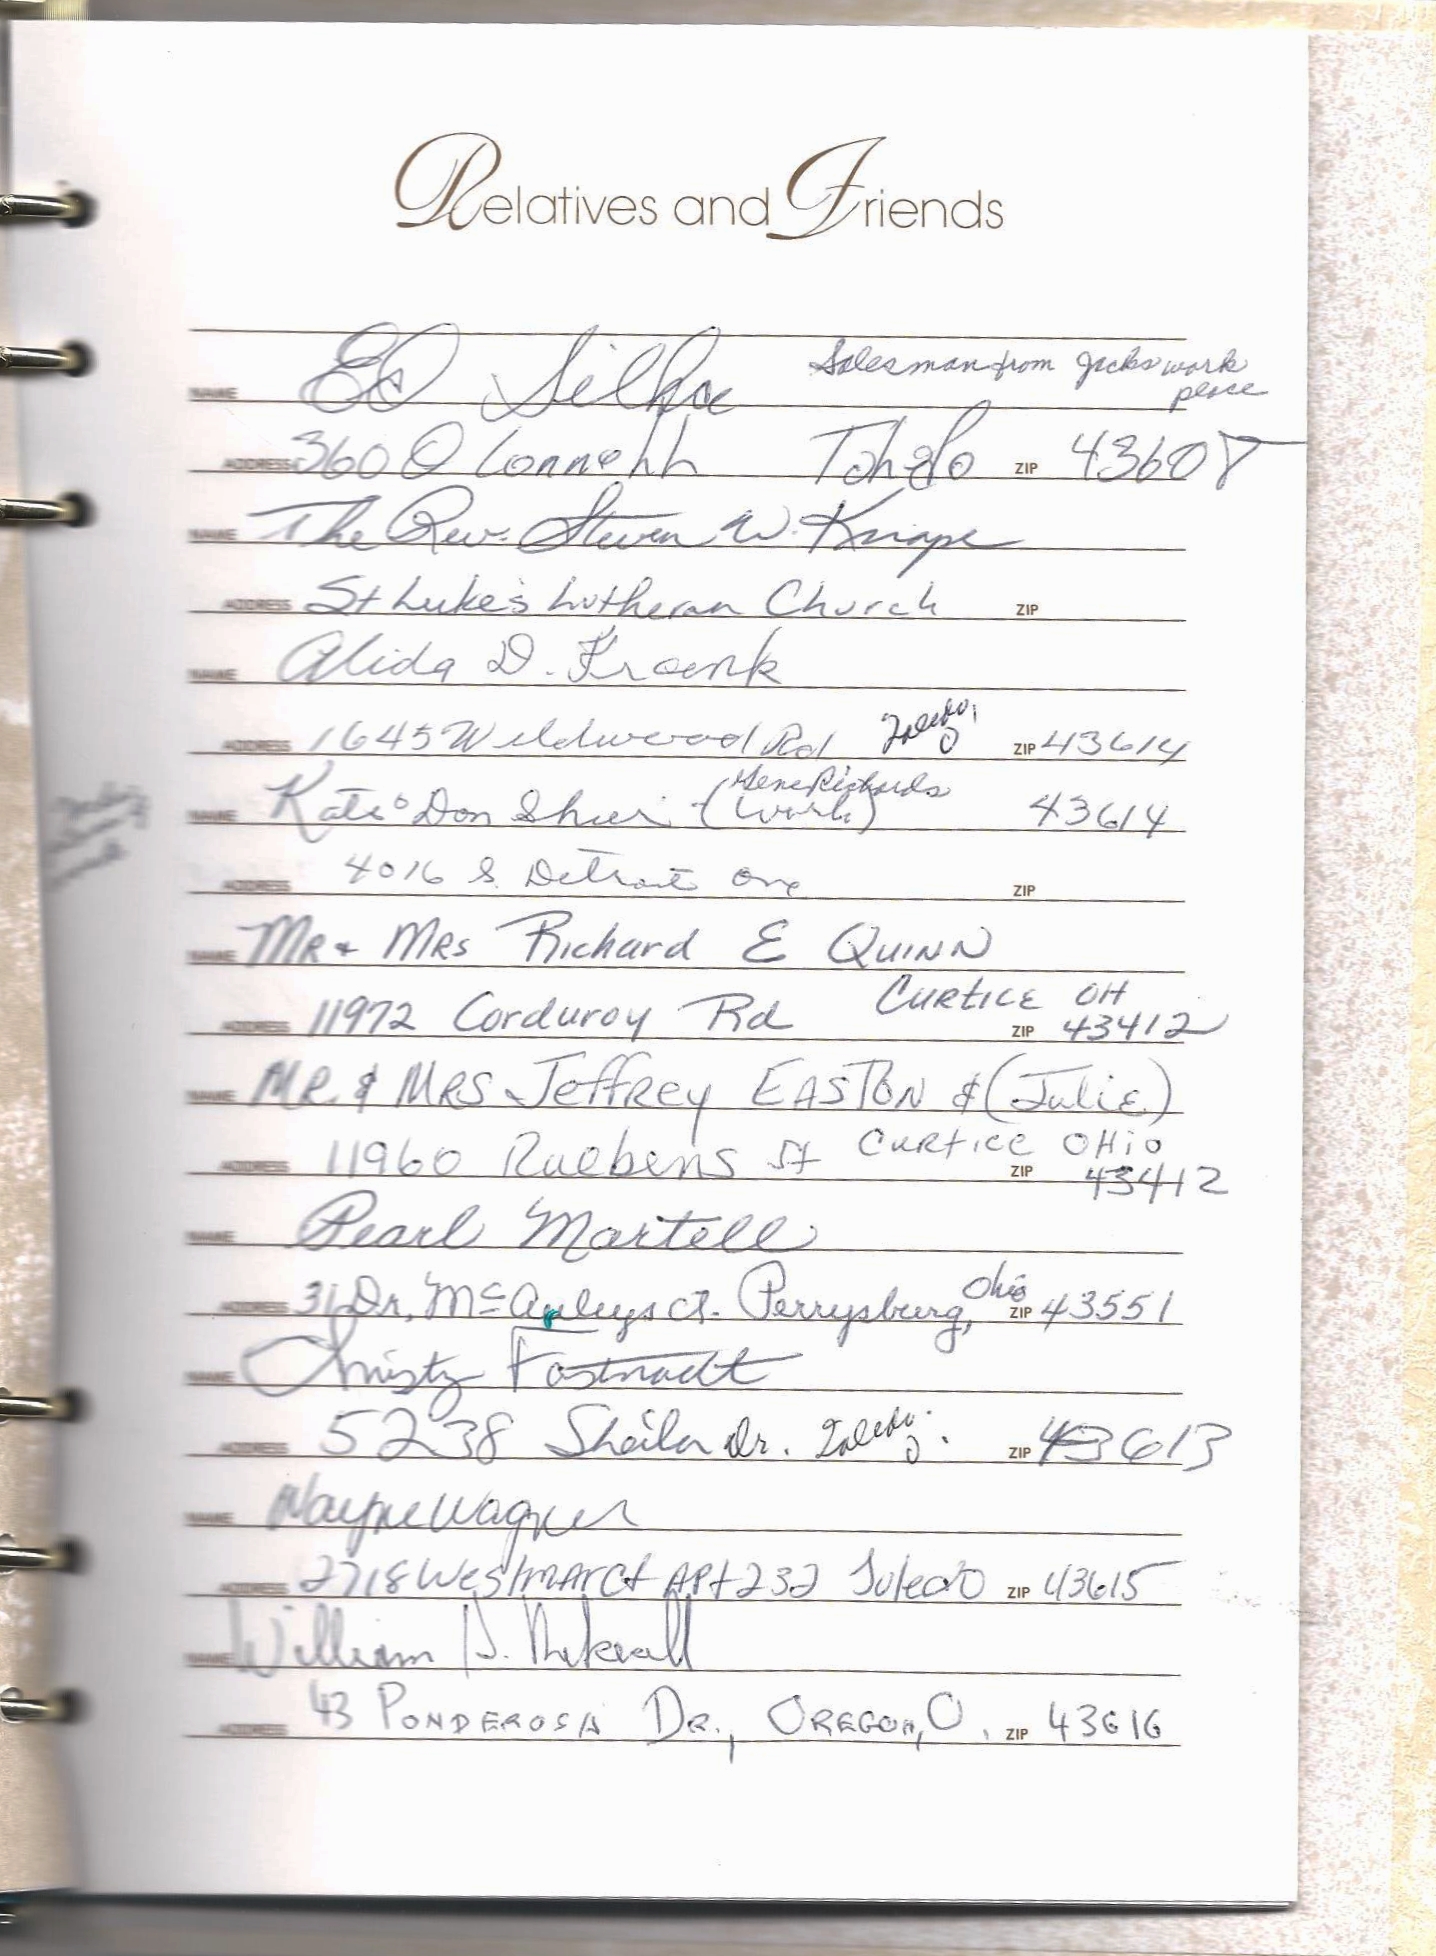 Relatives and Friends
Salesman from Jacks work
NAME Ed Silhoe place
ADDRESS 360 O Connell Toledo ZIP 43608
NAME The Rev. Steven W. Knape
ADDRESS St Luke's Lutheran Church ZIP
NAME Alida D. Frank
ADDRESS 1645 Wildwood Rd Toledo, ZIP 43614
Gene Richards
NAME Kate Don Shier (work) 43614
ADDRESS 4016 S. Detroit ZIP
NAME MR & MRS Richard E QUINN
ADDRESS 11972 Corduroy Rd CURTICE OH ZIP 43412
NAME MR. & MRS Jeffrey EASTON & (Julie)
ADDRESS 11960 Ruebens St CURTICE OHio ZIP 43412
NAME Pearl Martell
ADDRESS 31 Dr. McAuleys ct. Perrysburg, Ohio ZIP 43551
NAME Christy Fastnacht
ADDRESS 5238 Sheila Dr. Toledo. ZIP 43613
NAME Wayne Wagner
ADDRESS 2718 WestMAR Ct APt 232 Toledo ZIP 43615
NAME William
ADDRESS 43 PONDEROSA DR., OREGON, O. ZIP 43616